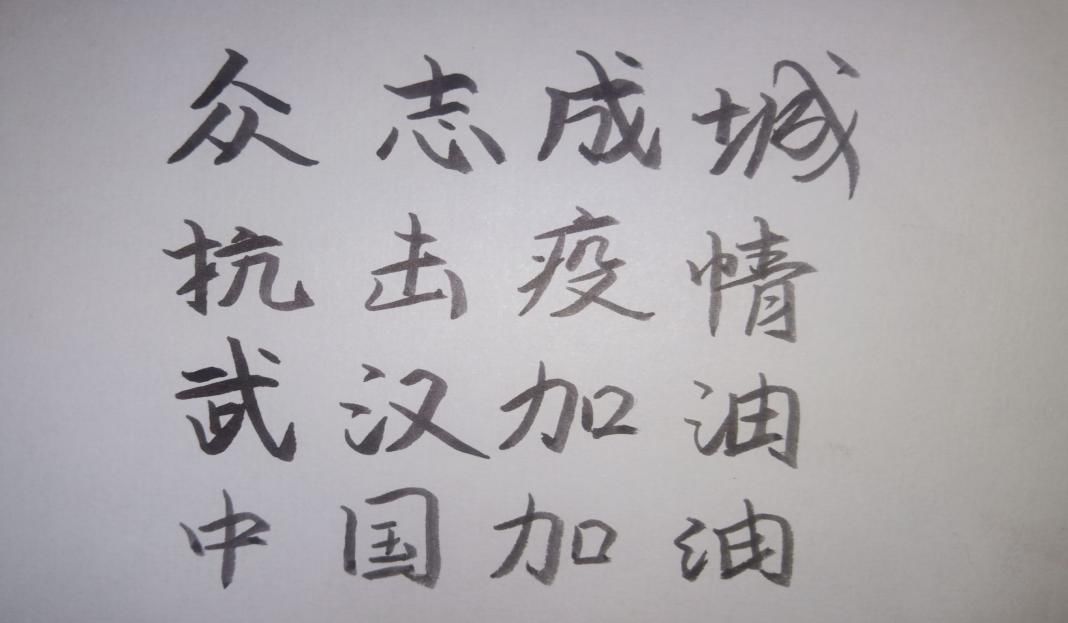 众志成城
抗击疫情
武汉加油
中国加油